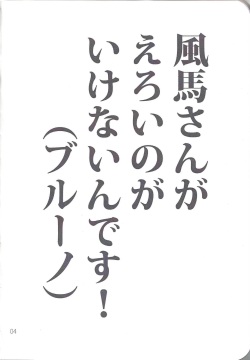 風馬さんが
えろいのが
いけないんです!
(ブルーノ)
04